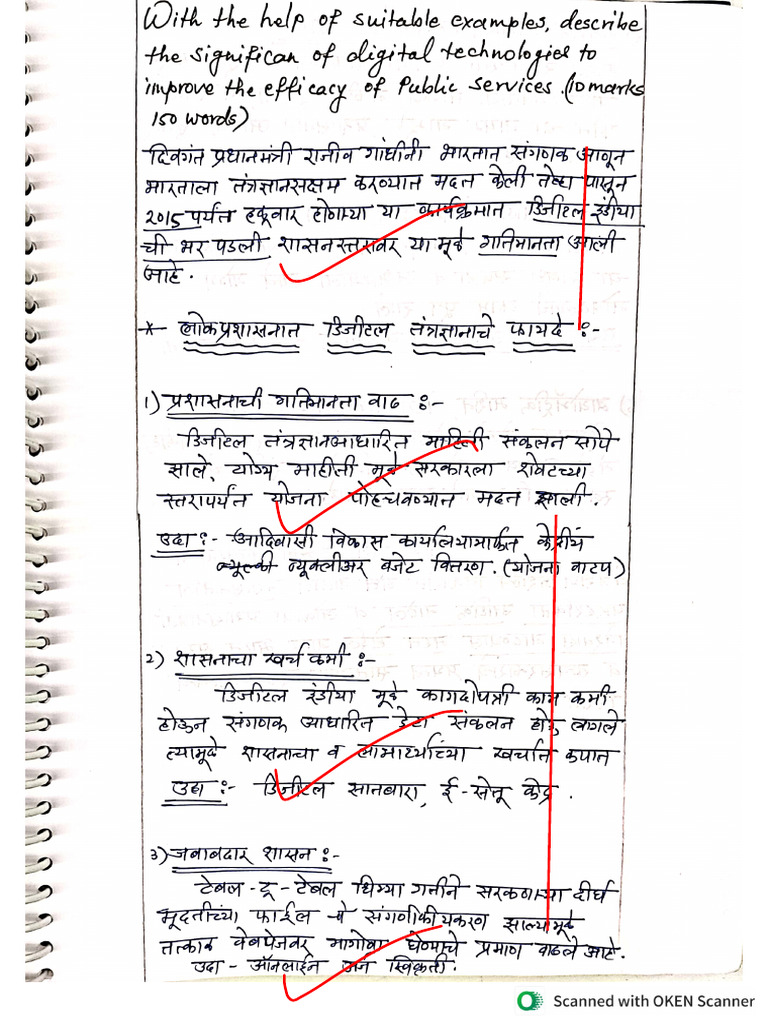 With the help of suitable examples, describe
the significan of digital technologies to
improve the efficacy of Public services. (10 marks
150 words)
दिवगंत प्रधानमंत्री राजीव गांधींनी भारतात संगणक आणून
भारताला तंत्रज्ञानसक्षम करण्यात मदत केली तेव्हा पासून
2015 पर्यंत हळूवार होणाऱ्या या कार्यक्रमात डिजीटल इंडीया
ची भर पडली शासनस्तरावर या मूळे गतिमानता आली
आहे.
* लोकप्रशासनात डिजीटल तंत्रज्ञानाचे फायदे :-
1) प्रशासनाची गतिमानता वाढ :-
डिजीटल तंत्रज्ञानआधारित माहिती संकलन सोपे
झाले, योग्य माहीती मूळे सरकारला शेवटच्या
स्तरापर्यंत योजना पोहचवण्यात मदत झाली.
उदा :- आदिवासी विकास कार्यालयामार्फत केंद्रीय
न्यूक्लीअर बजेट वितरण. (योजना वाटप)
2) शासनाचा खर्च कमी :-
डिजीटल इंडीया मूळे कागदोपत्री काम कमी
होऊन संगणक आधारित डेटा संकलन होऊ लागले
त्यामूळे शासनाचा व लाभार्थ्यांच्या खर्चात कपात
उदा :- डिजीटल सातबारा, ई-सेतू केंद्र.
3) जबाबदार शासन :-
टेबल-टू-टेबल धिम्या गतीने सरकणाऱ्या दीर्घ
मूदतीच्या फाईल चे संगणकीयकरण झाल्यामूळे
तत्काळ वेबपेजवर मागोवा घेण्याचे प्रमाण वाढले आहे.
उदा - ऑनलाईन अर्ज स्विकृती.
Scanned with OKEN Scanner